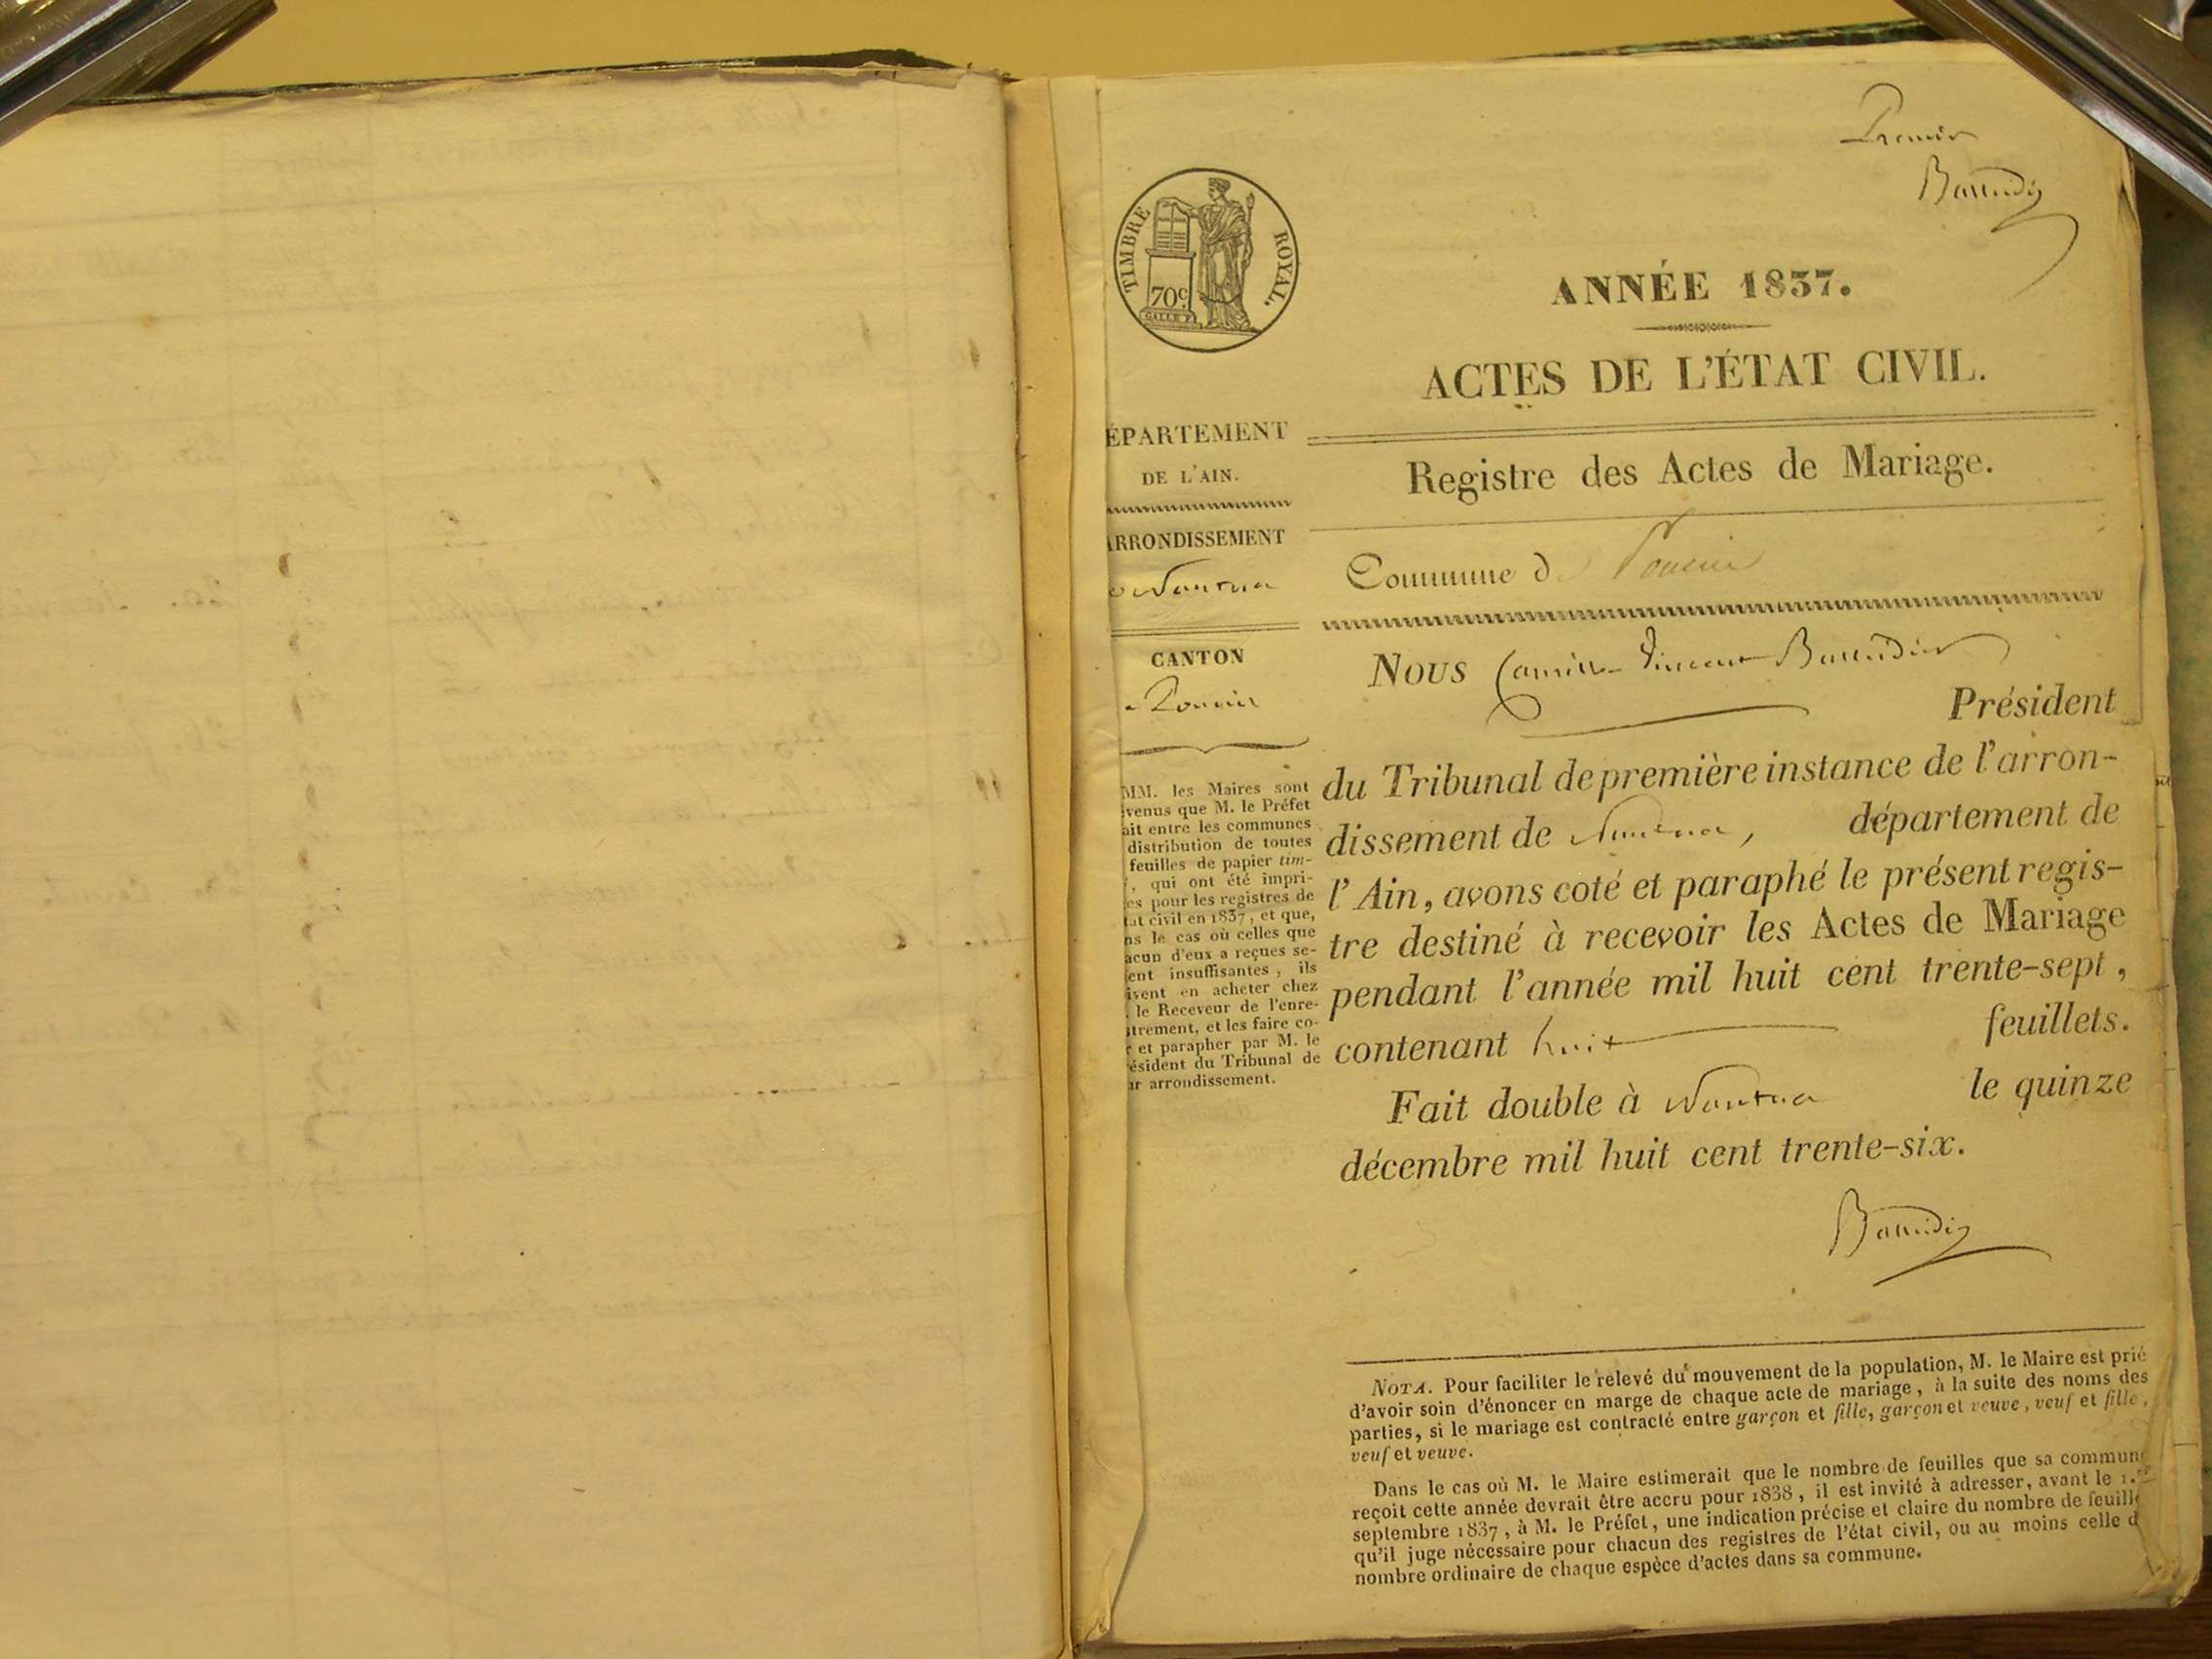 Premier
TIMBRE ROYAL.
70c.
ANNÉE 1837.
ACTES DE L'ÉTAT CIVIL.
ÉPARTEMENT
DE L'AIN.
Registre des Actes de Mariage.
ARRONDISSEMENT
Nantua
Commune d Poncin
CANTON
Poncin
Nous Camille Vincent
Président
du Tribunal de première instance de l'arron-
dissement de Nantua, département de
l'Ain, avons coté et paraphé le présent regis-
tre destiné à recevoir les Actes de Mariage
pendant l'année mil huit cent trente-sept,
contenant huit feuillets.
Fait double à Nantua le quinze
décembre mil huit cent trente-six.
MM. les Maires sont
venus que M. le Préfet
ait entre les communes
distribution de toutes
feuilles de papier tim-
, qui ont été impri-
es pour les registres de
tat civil en 1837, et que,
ns le cas où celles que
acun d'eux a reçues se-
ent insuffisantes, ils
ivent en acheter chez
. le Receveur de l'enre-
strement, et les faire co-
r et parapher par M. le
ésident du Tribunal de
ur arrondissement.
NOTA. Pour faciliter le relevé du mouvement de la population, M. le Maire est prié
d'avoir soin d'énoncer en marge de chaque acte de mariage, à la suite des noms des
parties, si le mariage est contracté entre garçon et fille, garçon et veuve, veuf et fille,
veuf et veuve.
Dans le cas où M. le Maire estimerait que le nombre de feuilles que sa commune
reçoit cette année devrait être accru pour 1838, il est invité à adresser, avant le 1.er
septembre 1837, à M. le Préfet, une indication précise et claire du nombre de feuille
qu'il juge nécessaire pour chacun des registres de l'état civil, ou au moins celle d
nombre ordinaire de chaque espèce d'actes dans sa commune.